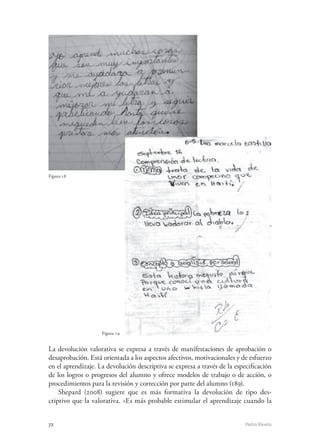 yo aprendi muchas cosas
que son muy importantes
y me ayudara a pronun
ciar mejores las letras y
que me a yudaran a
mejorar mi letra y seguir
practicando hasta que
me queden bien
Figura 18
6-5 Luz marcela castilla
septiembre 5
Comprensión de lectura.
① Tema trata de la vida de
unos campecino que
viven en Haití.
② Idea principal La pobreza lo
lleva
al diablo.
③ Concepto o analisis personal
Esta historia megusto
Porque conoci una cultura
en una llamada
Haití
Figura 19
La devolución valorativa se expresa a través de manifestaciones de aprobación o
desaprobación. Está orientada a los aspectos afectivos, motivacionales y de esfuerzo
en el aprendizaje. La devolución descriptiva se expresa a través de la especificación
de los logros o progresos del alumno y ofrece modelos de trabajo o de acción, o
procedimientos para la revisión y corrección por parte del alumno (189).
Shepard (2008) sugiere que es más formativa la devolución de tipo des-
criptivo que la valorativa. «Es más probable estimular el aprendizaje cuando la
72
Pedro Ravela